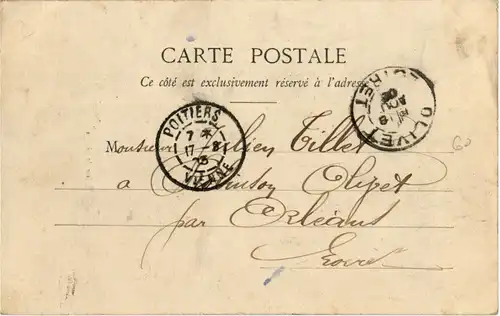 CARTE POSTALE
Ce côté est exclusivement réservé à l'adresse
POITIERS
7
17 -8
03
VIENNE
OLIVET
18
AOU
03
LOIRET
Monsieur Julien Tillet
a Olivet
par Orléans
Loiret
60